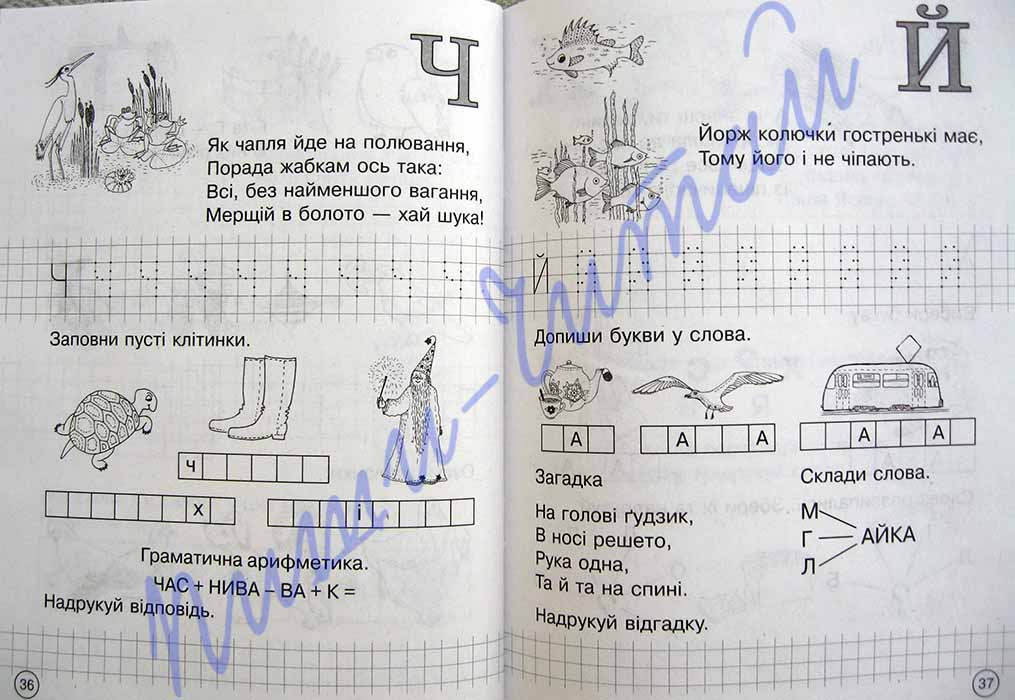 Ч
Як чапля йде на полювання,
Порада жабкам ось така:
Всі, без найменшого вагання,
Мерщій в болото — хай шука!
Ч
Заповни пусті клітинки.
Ч
Х
І
Граматична арифметика.
ЧАС + НИВА – ВА + К =
Надрукуй відповідь.
36
Й
Йорж колючки́ гостренькі має,
Тому його і не чіпають.
Й
Допиши букви у слова.
А
А А
А А
Загадка
На голові ґудзик,
В носі решето,
Рука одна,
Та й та на спині.
Надрукуй відгадку.
Склади слова.
М
Г — АЙКА
Л
37
пиши-читай